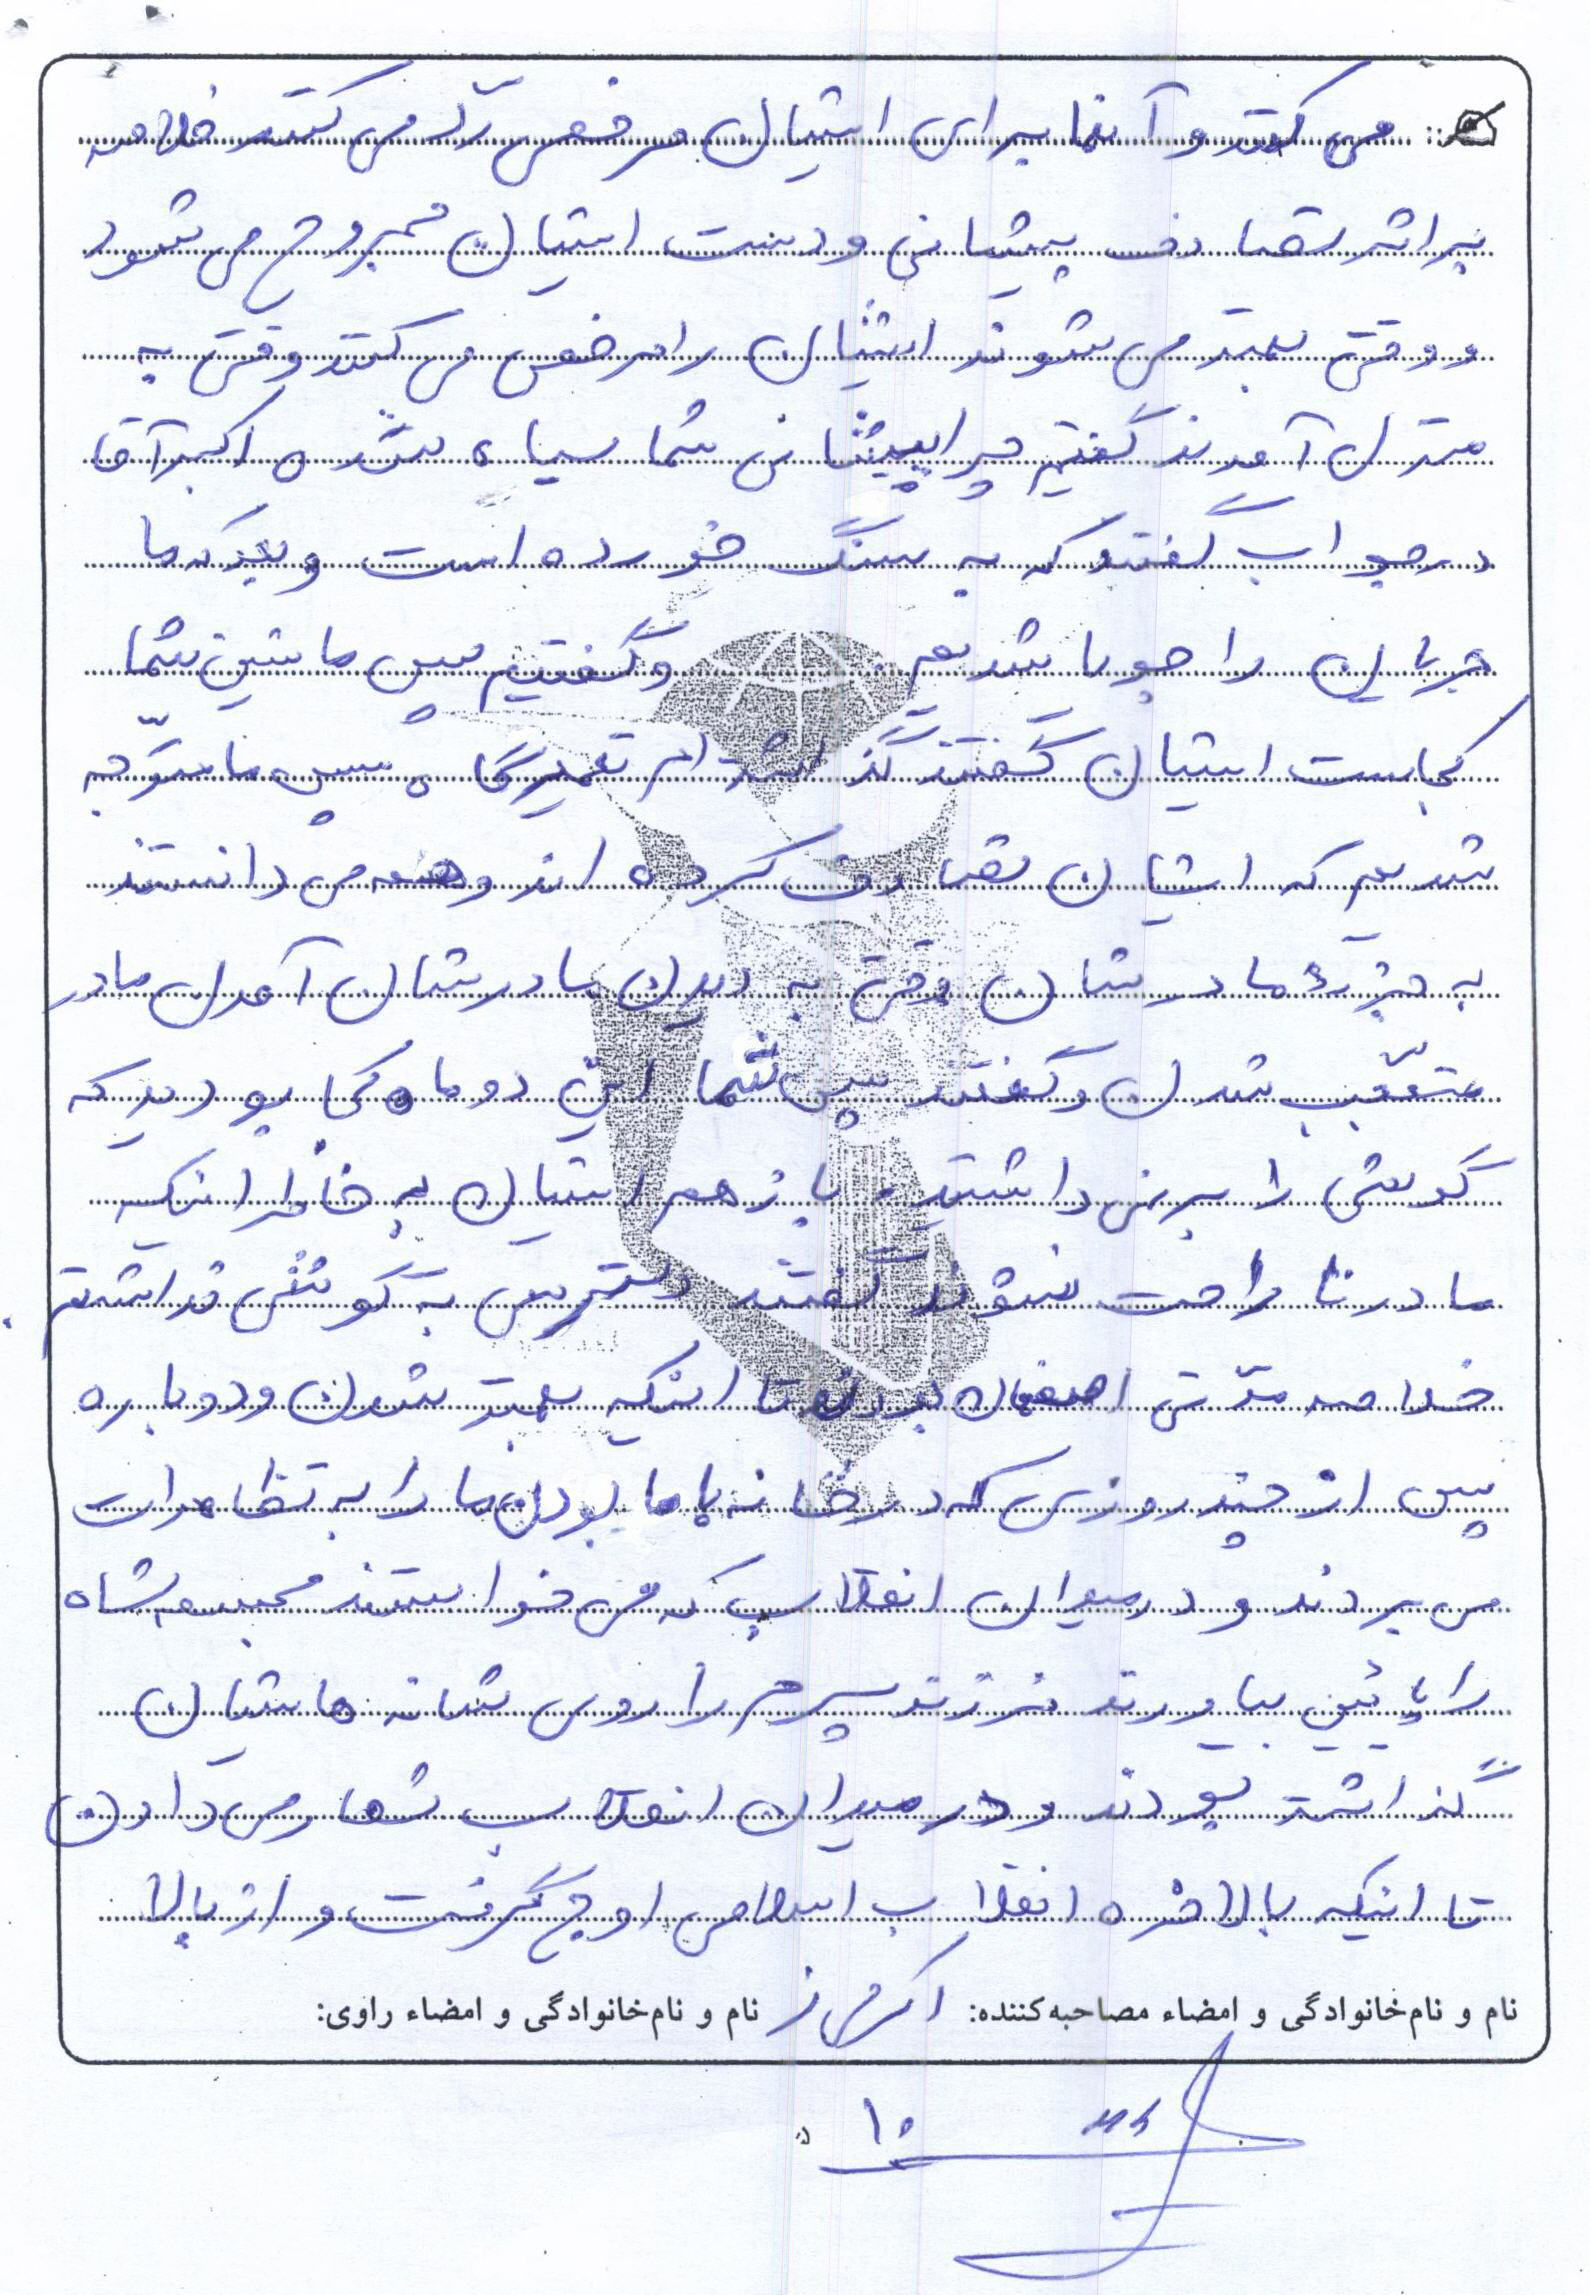 می کنند و آنها برای ایشان مرخصی رد می کنند خلاصه
بر اثر تصادف پیشانی و دست ایشان مجروح می شود
و وقتی بهتر می شوند ایشان را مرخص می کنند وقتی به
منزل آمدند گفتیم چرا پیشانی شما سیاه شده اکبرآقا
در جواب گفتند که به سنگ خورده است و بعد که ما
جریان را جویا شدیم. و گفتیم پس ماشین شما
کجاست ایشان گفتند گذاشته ام تعمیرگاه سپس ما متوجه
شدیم که ایشان تصادف کرده اند و همه می دانستند
به جزء مادرشان وقتی به دیدن مادرشان آمدن مادر
متعجب شدن و گفتند پس شما این دو ماه کجا بودید که
گوشی را برنمی داشتید، باز هم ایشان به خاطر اینکه
مادر نا راحت نشوند گفتند دسترسی به گوشی نداشتم.
خلاصه مدتی اصفهان بودند تا اینکه بهتر شدن و دوباره
پس از چند روزی که در خانه با ما بودن ما را به تظاهرات
می بردند و در میدان انقلاب که می خواستند مجسمه شاه
را پائین بیاورند فرزند پسرم را روی شانه هاشیان
گذاشته بودند و در میدان انقلاب شعار می دادن
تا اینکه بالاخره انقلاب اسلامی اوج گرفت و از بالا
نام و نام‌خانوادگی و امضاء مصاحبه‌کننده: نام و نام‌خانوادگی و امضاء راوی:
۱۰